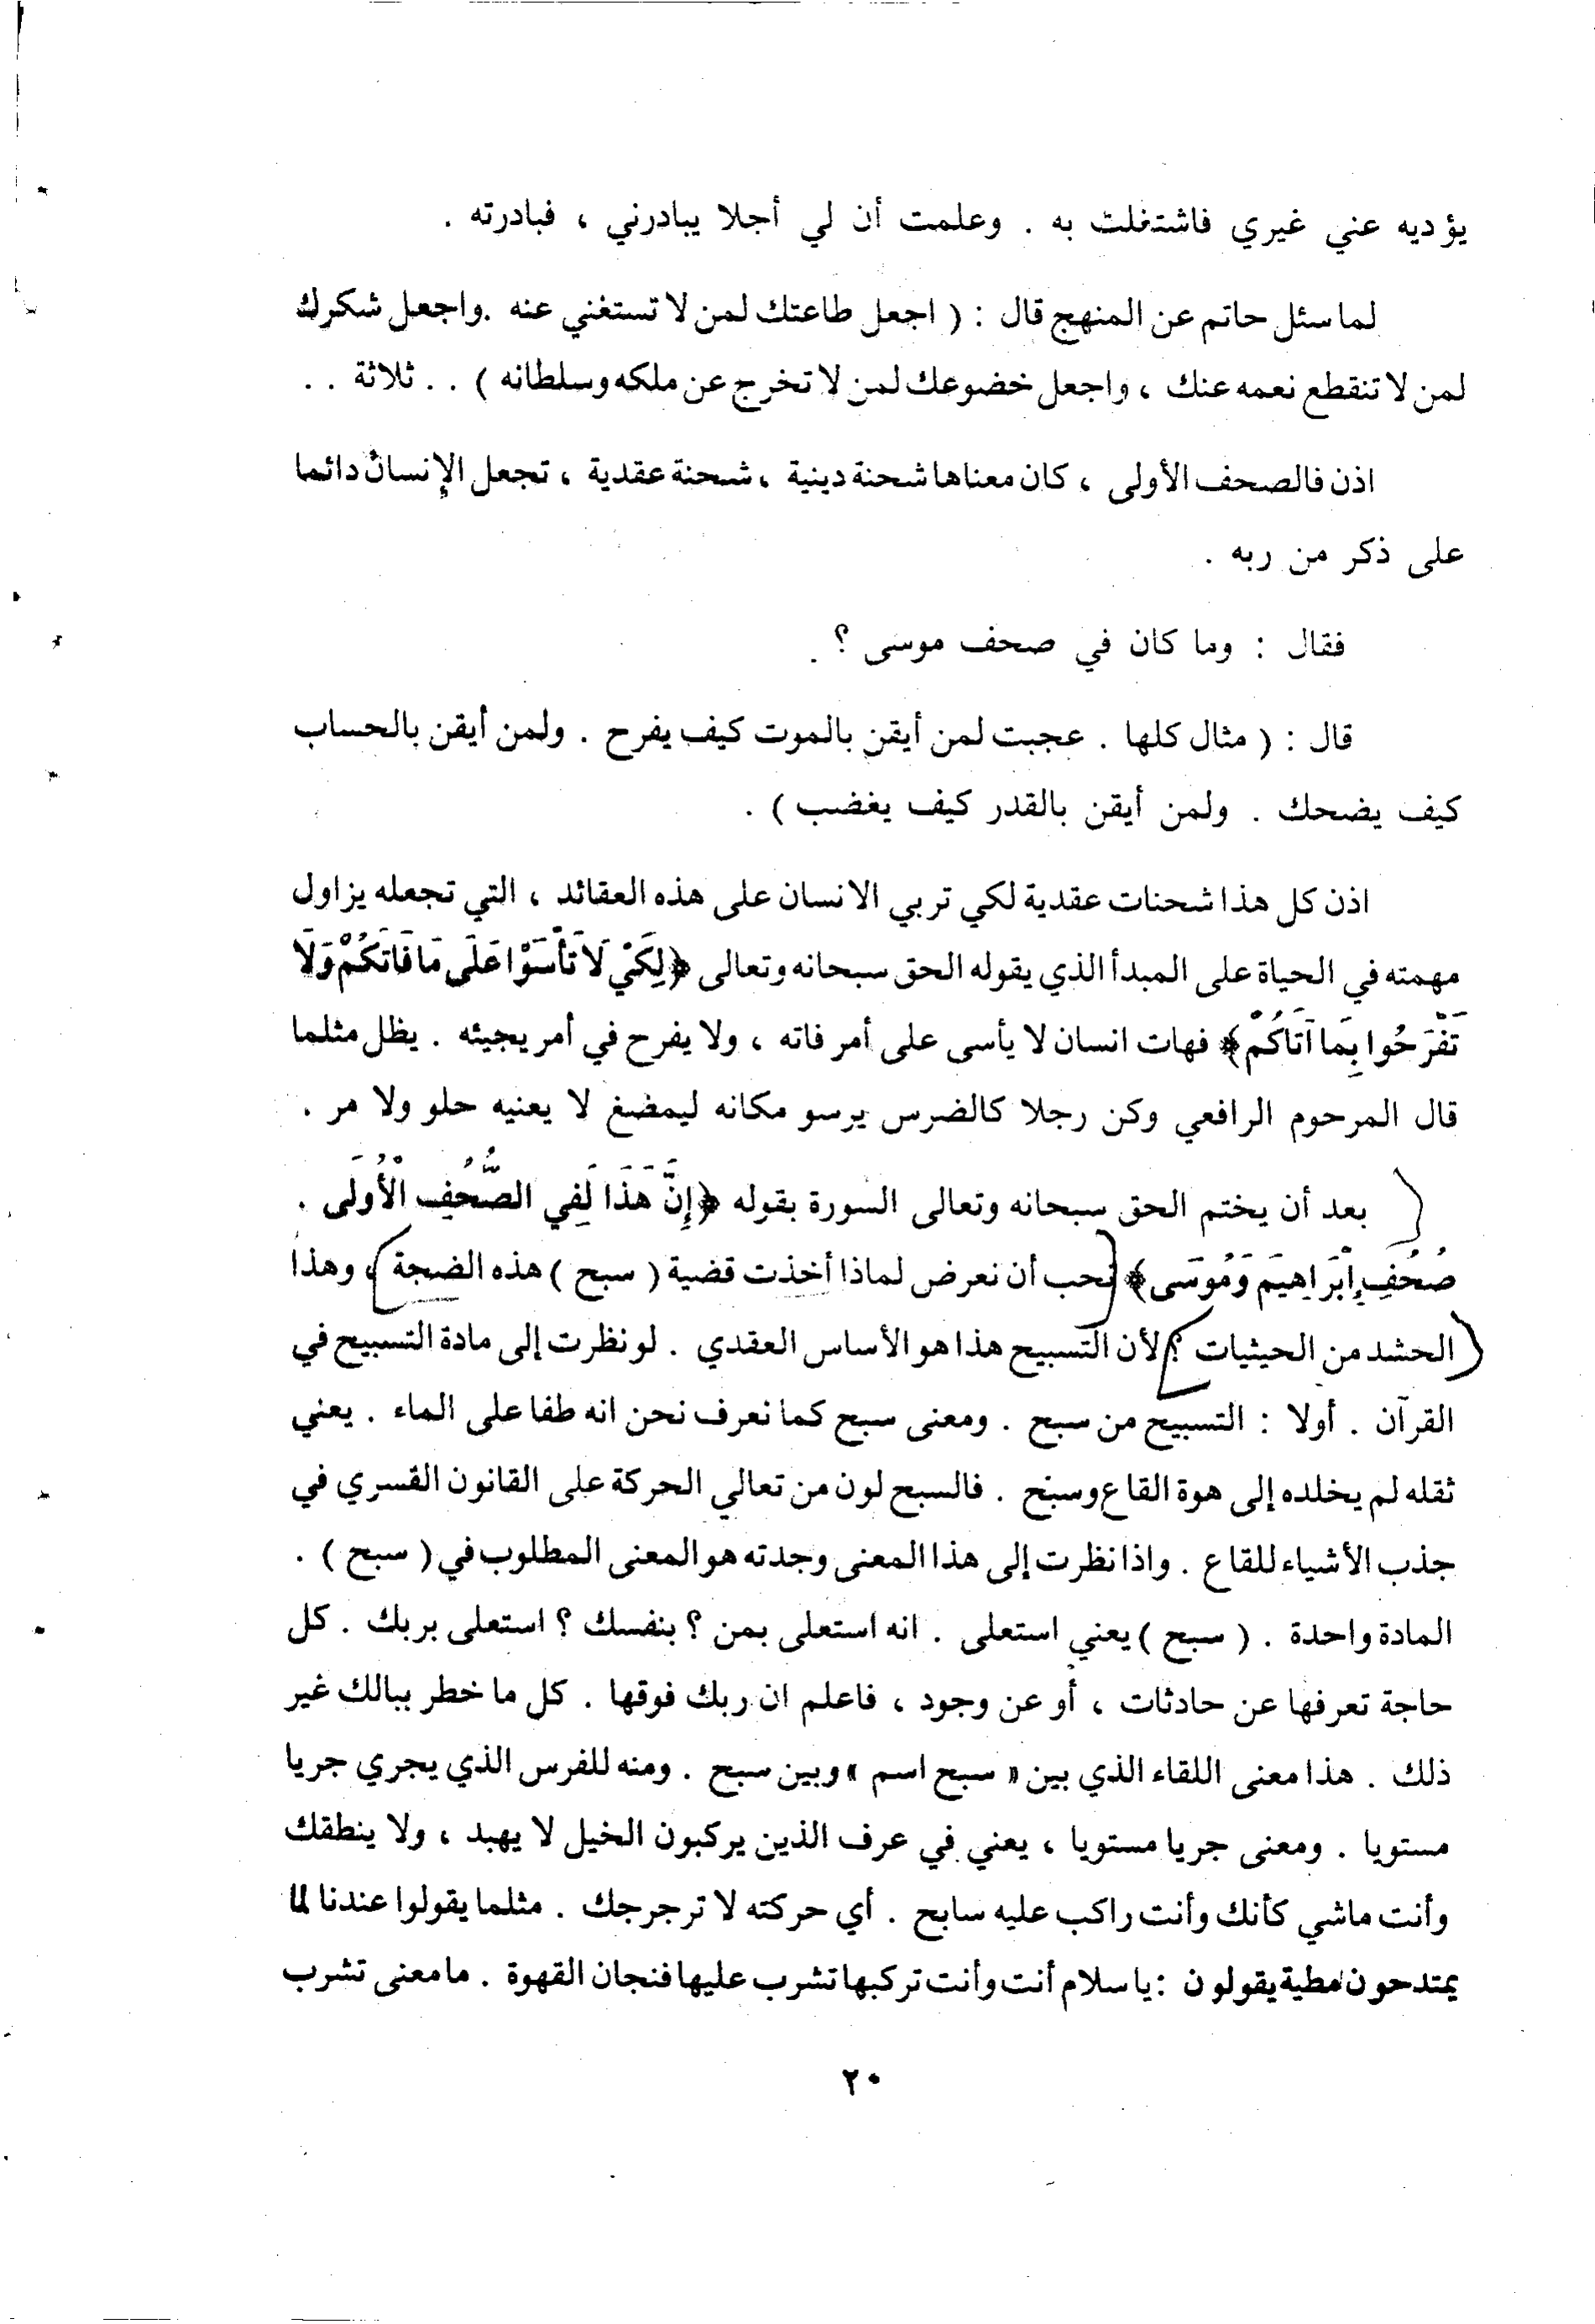 يؤديه عني غيري فاشتغلت به . وعلمت أن لي أجلا يبادرني ، فبادرته .
لما سئل حاتم عن المنهج قال : ( اجعل طاعتك لمن لا تستغني عنه .واجعل شكرك
لمن لا تنقطع نعمه عنك ، واجعل خضوعك لمن لا تخرج عن ملكه وسلطانه ) . . ثلاثة . .
اذن فالصحف الأولى ، كان معناها شحنة دينية ، شحنة عقدية ، تجعل الإنسان دائما
على ذكر من ربه .
فقال : وما كان في صحف موسى ؟ .
قال : ( مثال كلها . عجبت لمن أيقن بالموت كيف يفرح . ولمن أيقن بالحساب
كيف يضحك . ولمن أيقن بالقدر كيف يغضب ) .
اذن كل هذا شحنات عقدية لكي تربي الانسان على هذه العقائد ، التي تجعله يزاول
مهمته في الحياة على المبدأ الذي يقوله الحق سبحانه وتعالى ﴿لِكَيْ لَا تَأْسَوْا عَلَى مَا فَاتَكُمْ وَلَا
تَفْرَحُوا بِمَا آتَاكُمْ﴾ فهات انسان لا يأسى على أمر فاته ، ولا يفرح في أمر يجيئه . يظل مثلما
قال المرحوم الرافعي وكن رجلا كالضرس يرسو مكانه ليمضغ لا يعنيه حلو ولا مر .
بعد أن يختم الحق سبحانه وتعالى السورة بقوله ﴿إِنَّ هَذَا لَفِي الصُّحُفِ الْأُولَى .
صُحُفِ إِبْرَاهِيمَ وَمُوسَى﴾ نحب أن نعرض لماذا أخذت قضية ( سبح ) هذه الضجة ، وهذا
الحشد من الحيثيات ؟ لأن التسبيح هذا هو الأساس العقدي . لو نظرت إلى مادة التسبيح في
القرآن . أولا : التسبيح من سبح . ومعنى سبح كما نعرف نحن انه طفا على الماء . يعني
ثقله لم يخلده إلى هوة القاع وسبح . فالسبح لون من تعالي الحركة على القانون القسري في
جذب الأشياء للقاع . واذا نظرت إلى هذا المعنى وجدته هو المعنى المطلوب في ( سبح ) .
المادة واحدة . ( سبح ) يعني استعلى . انه استعلى بمن ؟ بنفسك ؟ استعلى بربك . كل
حاجة تعرفها عن حادثات ، أو عن وجود ، فاعلم ان ربك فوقها . كل ما خطر ببالك غير
ذلك . هذا معنى اللقاء الذي بين « سبح اسم » وبين سبح . ومنه للفرس الذي يجري جريا
مستويا . ومعنى جريا مستويا ، يعني في عرف الذين يركبون الخيل لا يهبد ، ولا ينطقك
وأنت ماشي كأنك وأنت راكب عليه سابح . أي حركته لا ترجرجك . مثلما يقولوا عندنا لما
يمتدحون مطية يقولون : يا سلام أنت وأنت تركبها تشرب عليها فنجان القهوة . ما معنى تشرب
٢٠